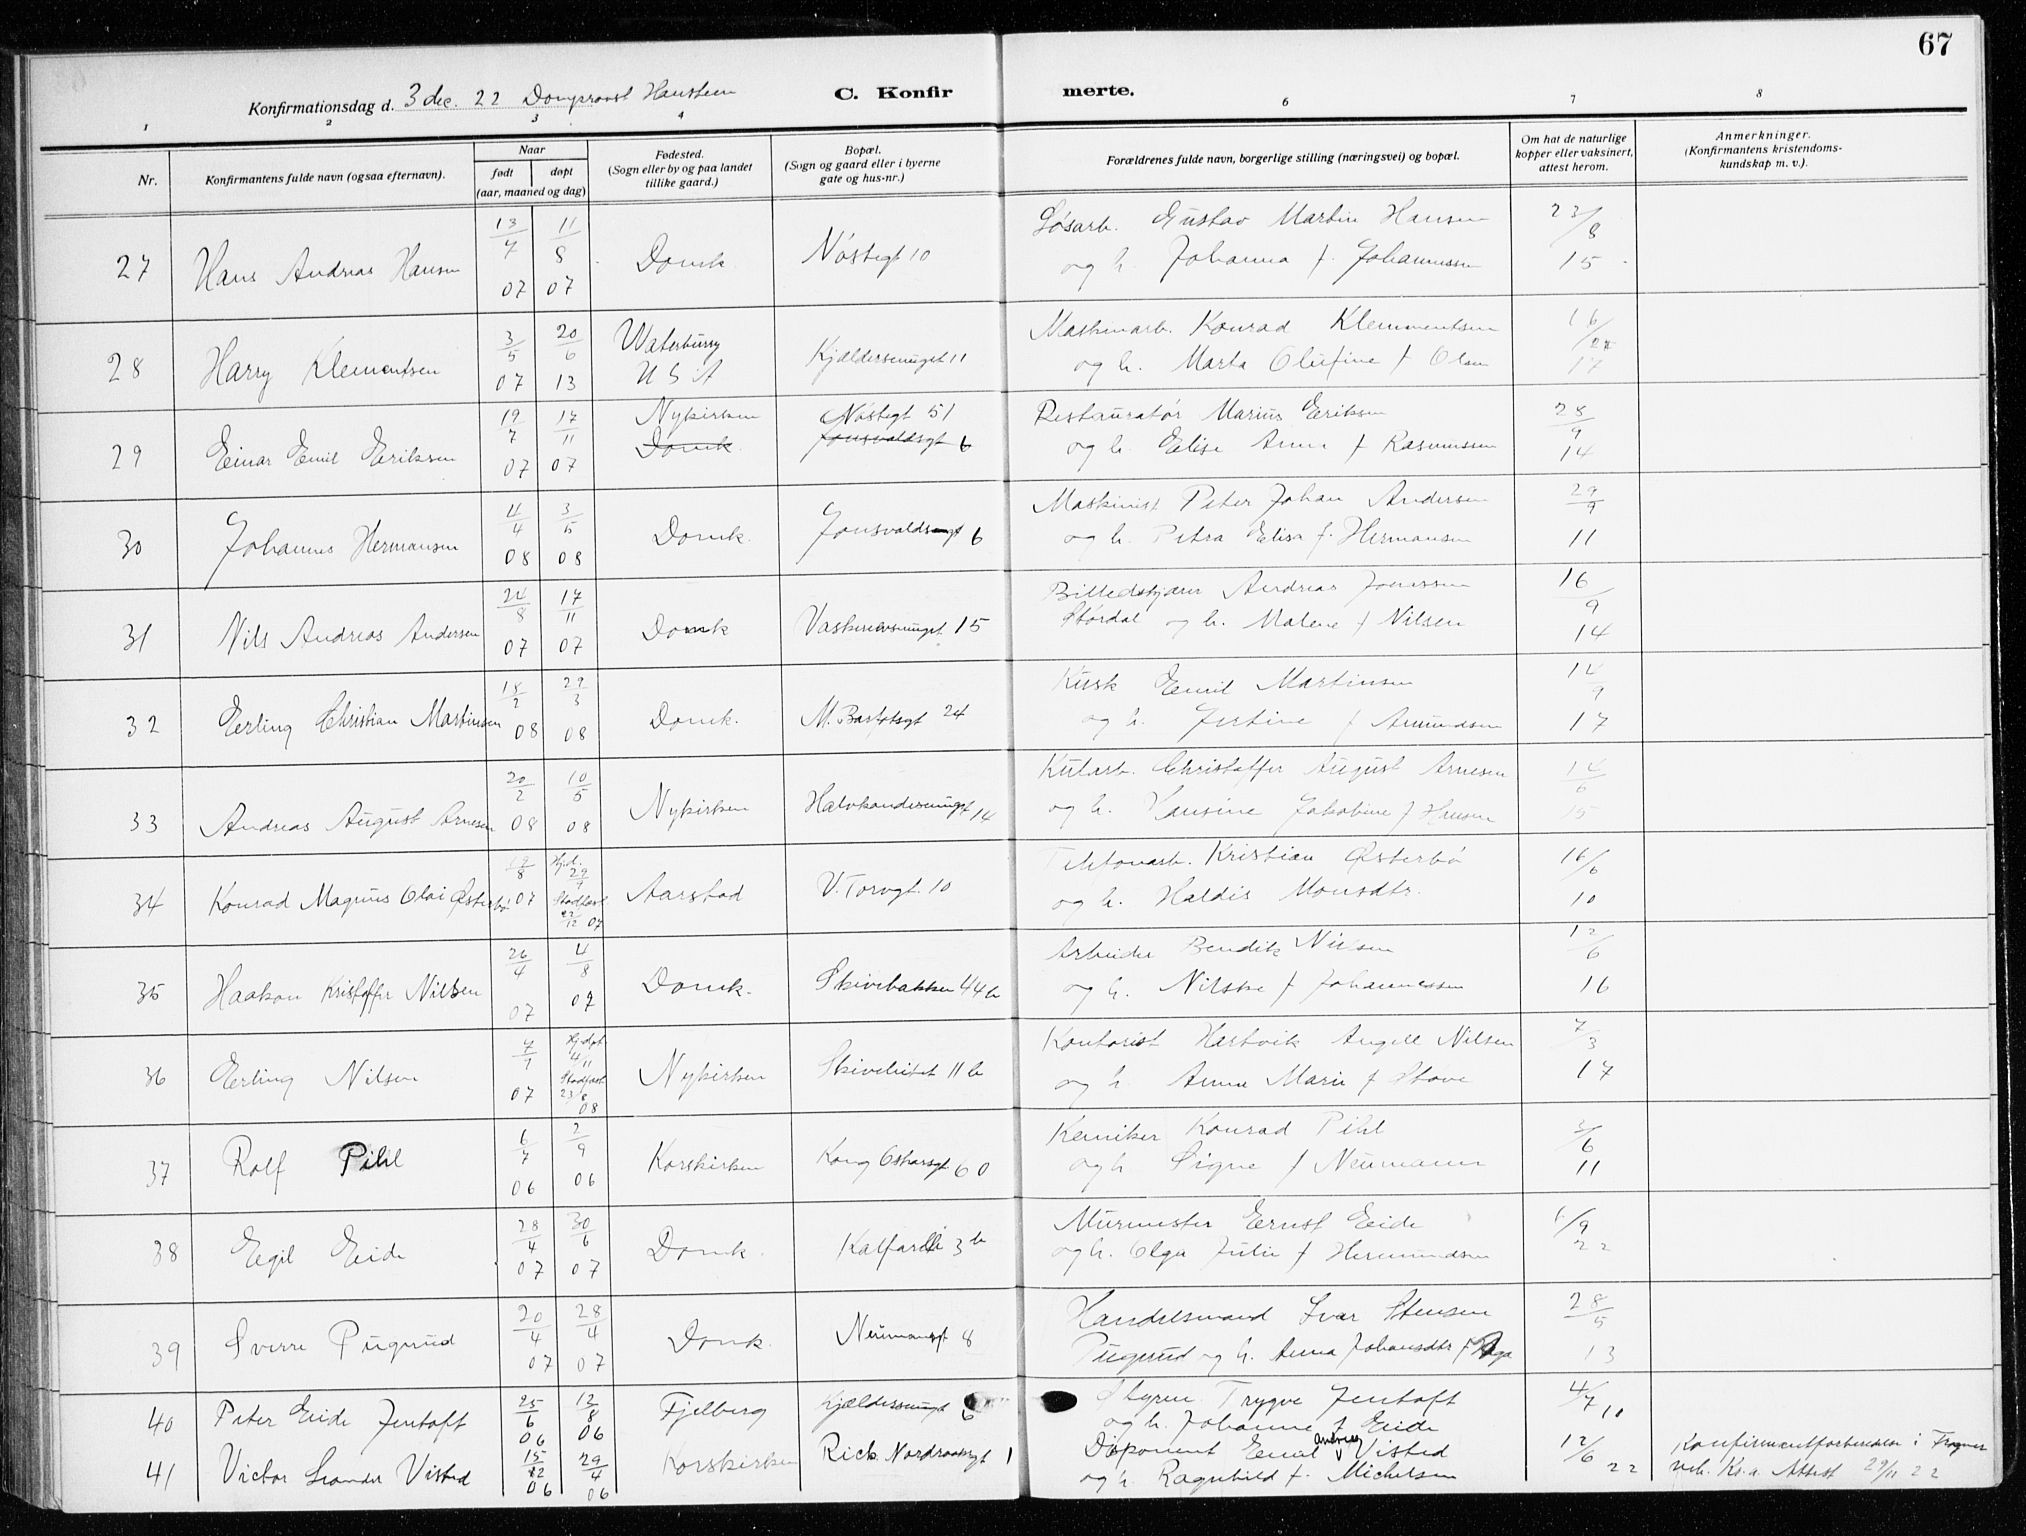 67
Konfirmationsdag d. 3 dec. 22 Domprovst Hansteen C. Konfirmerte.
1 2 3 4 6 7 8
Nr. Konfirmantens fulde navn (ogsaa efternavn). Naar født døpt (aar, maaned og dag) Fødested. (Sogn eller by og paa landet tillike gaard.) Bopæl. (Sogn og gaard eller i byerne gate og hus-nr.) Forældrenes fulde navn, borgerlige stilling (næringsvei) og bopæl. Om hat de naturlige kopper eller vaksinert, attest herom. Anmerkninger. (Konfirmantens kristendomskundskap m. v.).
27 Hans Andreas Hansen 13/7 07 11/8 07 Domk Nøstegt 10 Løsarb. Gustav Martin Hansen og h. Johanna f. Johannessen 23/8 15
28 Harry Klementsen 3/5 07 20/6 13 Waterbury U S A Kjældersmuget 11 Maskinarb. Konrad Klemmentsen og h. Marta Olufine f Olsen 16/ 17
29 Einar Emil Eriksen 19/7 07 17/11 07 Nykirken Domk. Nøstegt 51 Jonsvoldsgt 6 Restauratør Marius Eriksen og h. Elise Anna f Rasmussen 28/9 14
30 Johannes Hermansen 4/4 08 3/5 08 Domk. Jonsvoldsgt 6 Maskinist Peter Johan Andersen og h. Petra Elisa f. Hermansen 29/9 11
31 Nils Andreas Andersen 24/8 07 17/11 07 Domk Vaskerelvsmuget 15 Billedskjærer Andreas Jonassen Størdal og h. Malene f Nilsen 16/9 14
32 Erling Christian Martinsen 18/2 08 29/3 08 Domk. M. Barfotsgt 24 Kusk Emil Martinsen og h. Jertine f Amundsen 14/9 17
33 Andreas August Arnesen 20/2 08 10/5 08 Nykirken Halvkandesmugt 14 Kularb. Christoffer August Arnesen og h. Hansine Jakobine f Hansen 14/6 15
34 Konrad Magnus Olai Østerbø 19/8 07 Hjd. 29/9 Stadfæst 22/12 07 Aarstad V. Torvgt. 10 Kristian Østerbø og h. Haldis Monsdtr. 16/6 10
35 Haakon Kristoffer Nilsen 26/4 07 4/8 07 Domk. Skivebakken 44 b Arbeider Bendik Nilsen og h. Nilske f Johannessen 12/6 16
36 Erling Nilsen 7/7 07 Hj. døpt 4/11 Stadfæst 23/8 08 Nykirken Skivebakken 11 b Kontorist Hartvik Angell Nilsen og h. Anna Marie f Stave 7/3 17
37 Rolf Pihl 6/7 06 2/9 06 Korskirken Kong Oskarsgt 60 Kemiker Konrad Pihl og h Signe f Neumann 3/6 11
38 Egil Eide 28/4 07 30/6 07 Domk. Kalfaret 3 b Murmester Ernst Eide og h. Olga Julie f Hermundsen 1/9 22
39 Sverre Pugerud 20/4 07 28/4 07 Domk. Neumansgt 8 Handelsmand Ivar Stensen Pugerud og h. Anna Johansdtr f Aga 28/5 13
40 Peter Eide Jentoft 25/6 06 12/8 06 Fjelberg Kjældersmugt 6 Styrm. Trygve Jentoft og h. Johanne f Eide 4/7 10
41 Victor Leander Visted 15/12 06 29/4 06 Korskirken Rick. Nordraaksgt 1 Disponent Emil Andreas Visted og h. Ragnhild f. Michelsen 12/6 22 Konfirmantforberedelse i Frogner ved. Kr.a. Attest 29/11 22